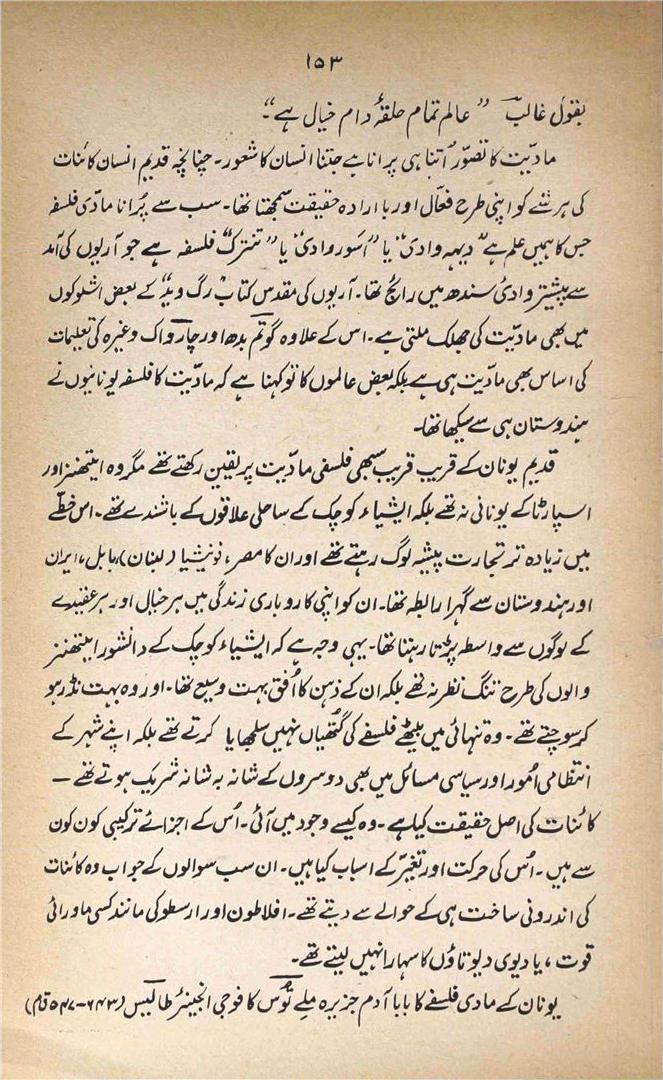 ۱۵۳
بقول غالبؔ ”عالم تمام حلقۂ دام خیال ہے“۔
مادیّت کا تصوّر اُتنا ہی پرانا ہے جتنا انسان کا شعور۔ چنانچہ قدیم انسان کائنات
کی ہر شئے کو اپنی طرح فعّال اور باارادہ حقیقت سمجھتا تھا۔ سب سے پُرانا مادّی فلسفہ
جس کا ہمیں علم ہے ”دیہہ وادی“ یا ”اَسور وادی“ یا ”تنترک“ فلسفہ ہے جو آریوں کی آمد
سے پیشتر وادیٔ سندھ میں رائج تھا۔ آریوں کی مقدس کتاب ”رگ وید“ کے بعض اشلوکوں
میں بھی مادیّت کی جھلک ملتی ہے۔ اس کے علاوہ گوتم بدھ اور چارواک وغیرہ کی تعلیمات
کی اساس بھی مادیّت ہی ہے بلکہ بعض عالموں کا تو کہنا ہے کہ مادیّت کا فلسفہ یونانیوں نے
ہندوستان ہی سے سیکھا تھا۔
قدیم یونان کے قریب قریب سبھی فلسفی مادیّت پر یقین رکھتے تھے مگر وہ ایتھنز اور
اسپارٹا کے یونانی نہ تھے بلکہ ایشیاء کوچک کے ساحلی علاقوں کے باشندے تھے۔ اس خطّے
میں زیادہ تر تجارت پیشہ لوگ رہتے تھے اور ان کا مصر، فونیشیا (لبنان) بابل، ایران
اور ہندوستان سے گہرا رابطہ تھا۔ ان کو اپنی کاروباری زندگی میں ہر خیال اور ہر عقیدے
کے لوگوں سے واسطہ پڑتا رہتا تھا۔ یہی وجہ ہے کہ ایشیاء کوچک کے دانشور ایتھنز
والوں کی طرح تنگ نظر نہ تھے بلکہ ان کے ذہن کا اُفق بہت وسیع تھا۔ اور وہ بہت نڈر ہو
کر سوچتے تھے۔ وہ تنہائی میں بیٹھے فلسفے کی گتھیاں نہیں سلجھایا کرتے تھے بلکہ اپنے شہر کے
انتظامی اُمور اور سیاسی مسائل میں بھی دوسروں کے شانہ بہ شانہ شریک ہوتے تھے —
کائنات کی اصل حقیقت کیا ہے۔ وہ کیسے وجود میں آئی۔ اُس کے اجزائے ترکیبی کون کون
سے ہیں۔ اُس کی حرکت اور تغیّر کے اسباب کیا ہیں۔ ان سب سوالوں کے جواب وہ کائنات
کی اندرونی ساخت ہی کے حوالے سے دیتے تھے۔ افلاطون اور ارسطو کی مانند کسی ماورائی
قوت، یا دیوی دیوتاؤں کا سہارا نہیں لیتے تھے۔
یونان کے مادی فلسفے کا باباآدم جزیرہ ملے ٹوس کا فوجی انجینئر طالیس (۶۴۳-۵۴۷ ق م)